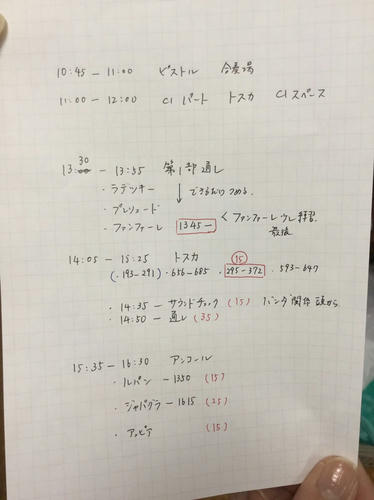 10:45 - 11:00 ピストル 合奏場
11:00 - 12:00 Cl パート トスカ Cl スペース
13:30 - 13:55 第1部 通し
・ラデツキー ↓ できるだけつめる。
・プレリュード
・ファンファーレ 1345- < ファンファーレ ウレ 練習 最後
14:05 - 15:25 トスカ (15)
(・193-291) ・656-685 ・295-372 ・593-647
・14:35 - サウンドチェック (15) バンダ関係 頭から
・14:50 - 通し (35)
15:35 - 16:30 アンコール
・ルパン - 1550 (15)
・ジャパグラ - 1615 (25)
・アッピア (15)